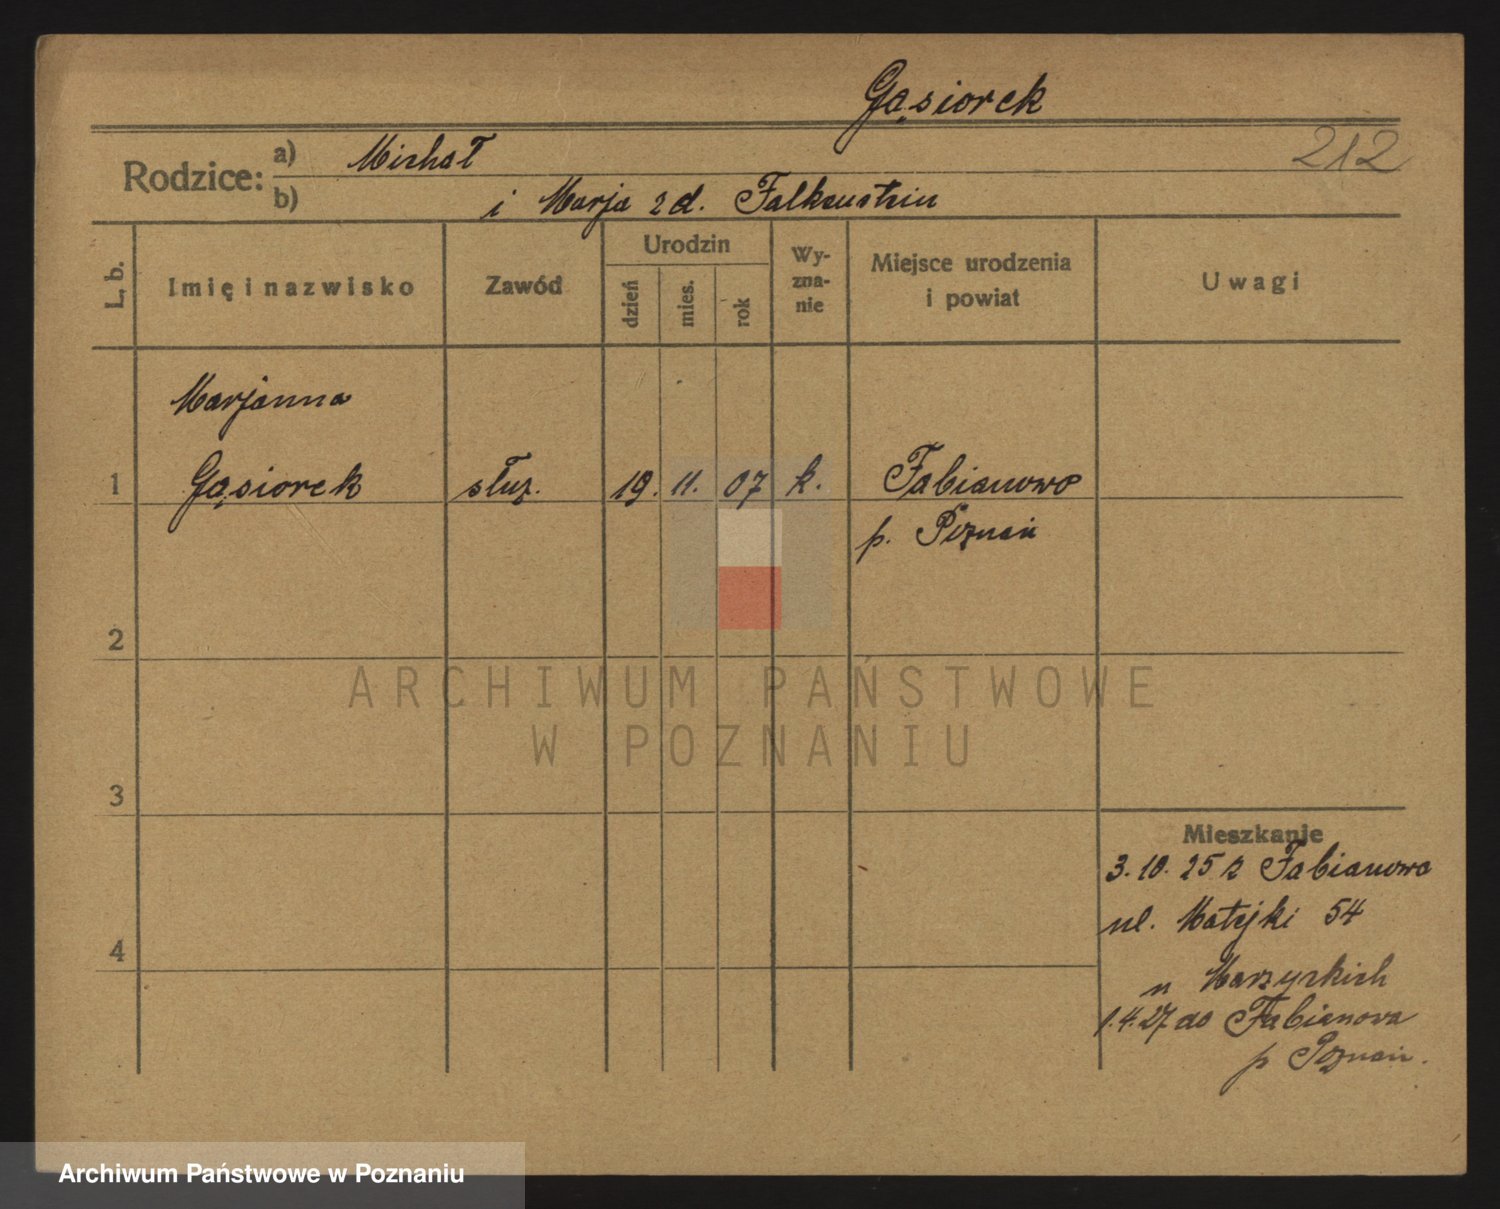 Gąsiorek
212
Rodzice:
a) Michał
b) i Marja zd. Falkenstein
L. b.
Imię i nazwisko
Zawód
Urodzin
dzień
mies.
rok
Wy-
zna-
nie
Miejsce urodzenia
i powiat
Uwagi
Marjanna
1 Gąsiorek służ. 19. 11. 07 k. Fabianowo
p. Poznań
2
3
4
ARCHIWUM PAŃSTWOWE
W POZNANIU
Mieszkanie
3. 10. 25 z Fabianowa
ul. Matejki 54
u
1.4.27 do Fabianowa
p Poznań.
Archiwum Państwowe w Poznaniu